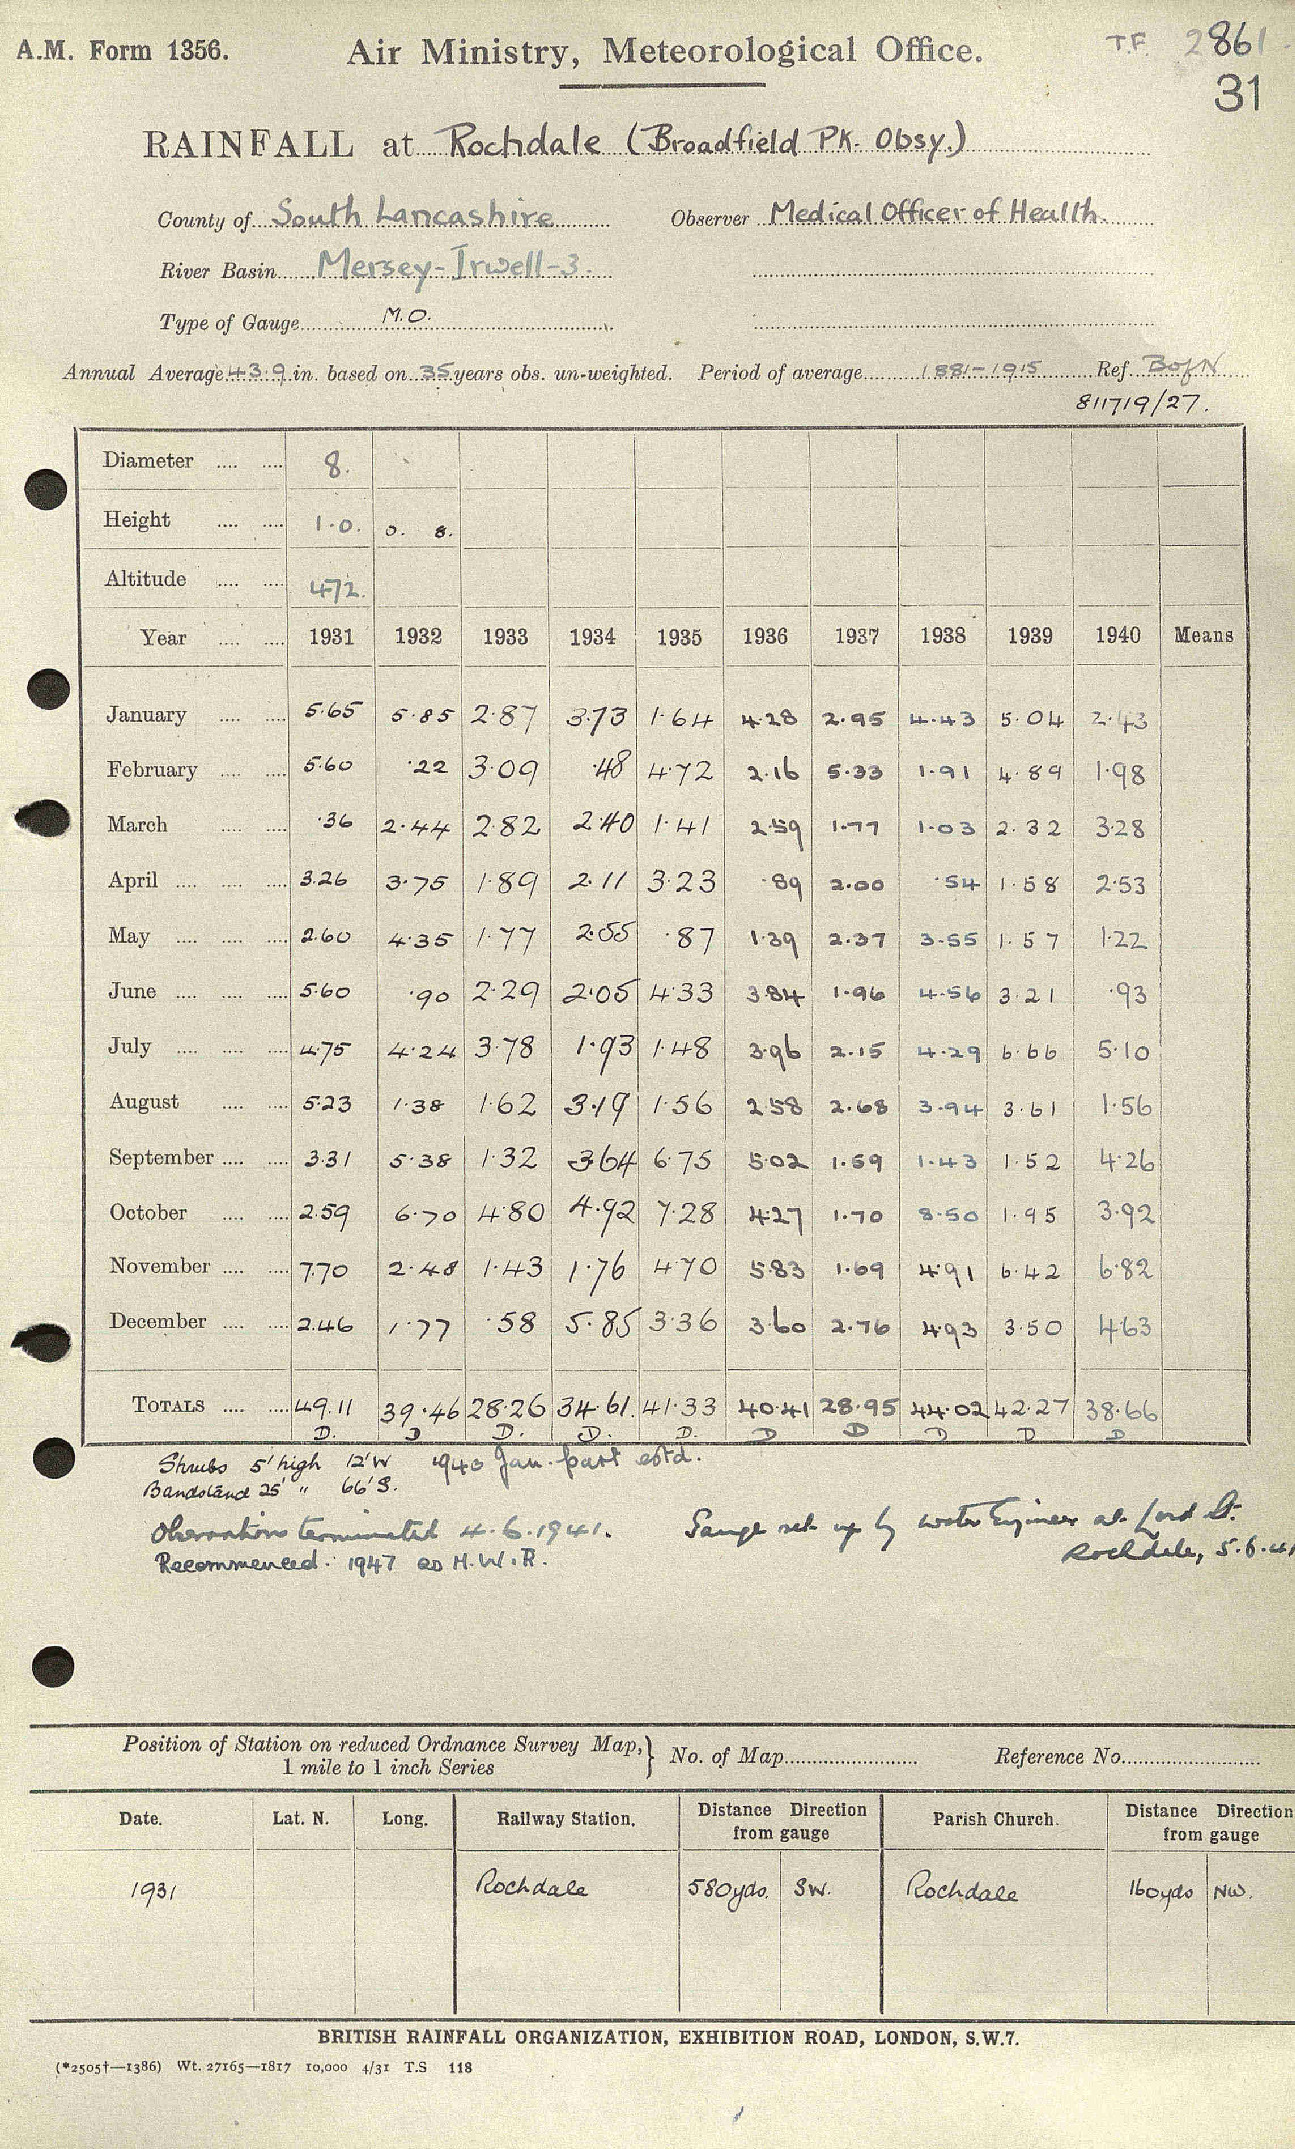 A.M. Form 1356. Air Ministry, Meteorological Office. T.F. 2861
31
RAINFALL at Rochdale (Broadfield Pk. Obsy.)
County of South Lancashire Observer Medical Officer of Health.
River Basin Mersey-Irwell-3.
Type of Gauge M.O.
Annual Average 43.9 in. based on 35 years obs. un-weighted. Period of average 1881-1915 Ref. B of N
811719/27.
Diameter .... .... 8.
Height .... .... 1.0. 0. 8.
Altitude .... .... 472.
Year .... .... 1931 1932 1933 1934 1935 1936 1937 1938 1939 1940 Means
January .... .... 5.65 5.85 2.87 3.73 1.64 4.28 2.95 4.43 5.04 2.43
February .... .... 5.60 .22 3.09 .48 4.72 2.16 5.33 1.91 4.89 1.98
March .... .... .36 2.44 2.82 2.40 1.41 2.59 1.77 1.03 2.32 3.28
April .... .... .... 3.26 3.75 1.89 2.11 3.23 .89 2.00 .54 1.58 2.53
May .... .... .... 2.60 4.35 1.77 2.55 .87 1.39 2.37 3.55 1.57 1.22
June .... .... .... 5.60 .90 2.29 2.05 4.33 3.84 1.96 4.56 3.21 .93
July .... .... .... 4.75 4.24 3.78 1.93 1.48 3.96 2.15 4.29 6.66 5.10
August .... .... 5.23 1.38 1.62 3.19 1.56 2.58 2.68 3.94 3.61 1.56
September .... .... 3.31 5.38 1.32 3.64 6.75 5.02 1.59 1.43 1.52 4.26
October .... .... 2.59 6.70 4.80 4.92 7.28 4.27 1.70 8.50 1.95 3.92
November .... .... 7.70 2.48 1.43 1.76 4.70 5.83 1.69 4.91 6.42 6.82
December .... .... 2.46 1.77 .58 5.85 3.36 3.60 2.76 4.93 3.50 4.63
TOTALS .... .... 49.11 39.46 28.26 34.61. 41.33 40.41 28.95 44.02 42.27 38.66
D. D D. D. D. D D D D D
Shrubs 5' high 12'W 1940 Jan. part estd.
Bandstand 25' " 66'S.
Observations terminated 4.6.1941. Gauge set up by Water Engineer at Lord St.
Recommenced. 1947 as H.W.R. Rochdale, 5.6.41
Position of Station on reduced Ordnance Survey Map, } No. of Map Reference No.
1 mile to 1 inch Series
Date. Lat. N. Long. Railway Station. Distance Direction from gauge Parish Church. Distance Direction from gauge
1931 Rochdale 580yds. SW. Rochdale 160yds NW.
BRITISH RAINFALL ORGANIZATION, EXHIBITION ROAD, LONDON, S.W.7.
(*2505†—1386) Wt. 27165—1817 10,000 4/31 T.S 118